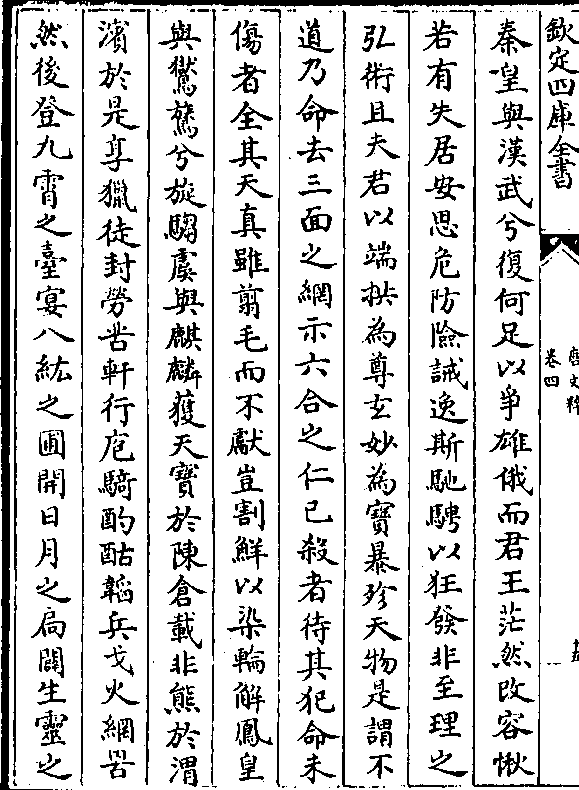 欽定四庫全書
唐文粹
卷四
秦皇與漢武兮復何足以爭雄俄而君王茫然改容愀
若有失居安思危防險誡逸斯馳騁以狂發非至理之
弘術且夫君以端拱為尊玄妙為寳暴殄天物是謂不
道乃命去三面之網示六合之仁已殺者待其犯命未
傷者全其天真雖翦毛而不獻豈割鮮以染輪解鳳皇
與鸑鷟兮旋騶虞與麒麟獲天寳於陳倉載非熊於渭
濱於是享獵徒封勞苦軒行庖騎酌酤韜兵戈火網罟
然後登九霄之臺宴八紘之圃開日月之扃闢生靈之